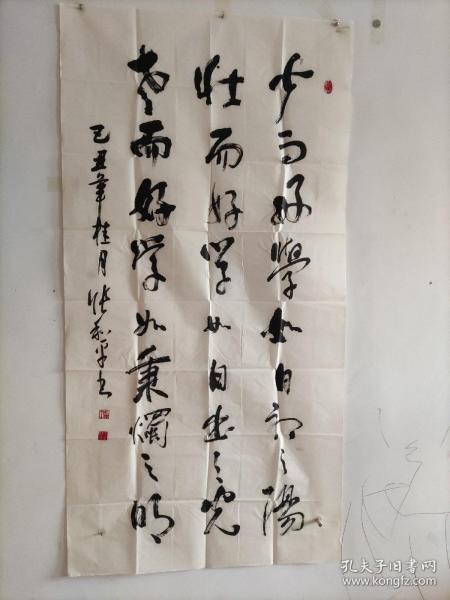 少而好學如日之陽
壮而好学如日之光
老而好学如秉燭之明
己丑年桂月张书
孔夫子旧书网
www.kongfz.com